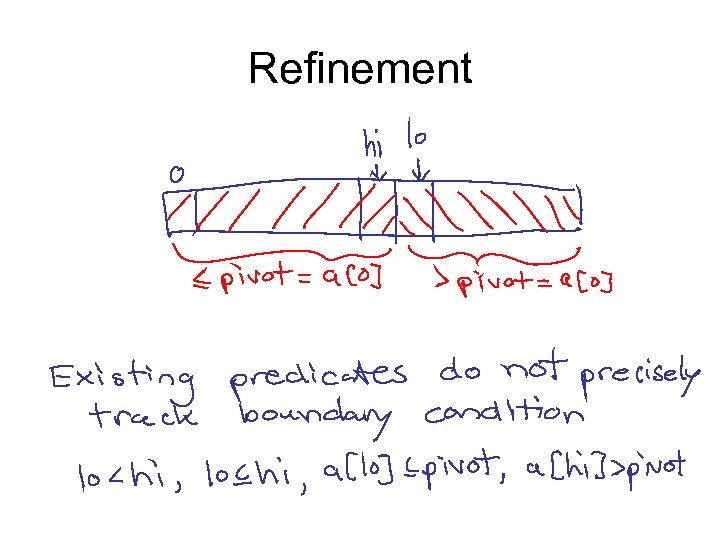 Refinement
hi lo
0
≤ pivot = a[0] > pivot = a[0]
Existing predicates do not precisely
track boundary condition
lo<hi, lo≤hi, a[lo]≤pivot, a[hi]>pivot